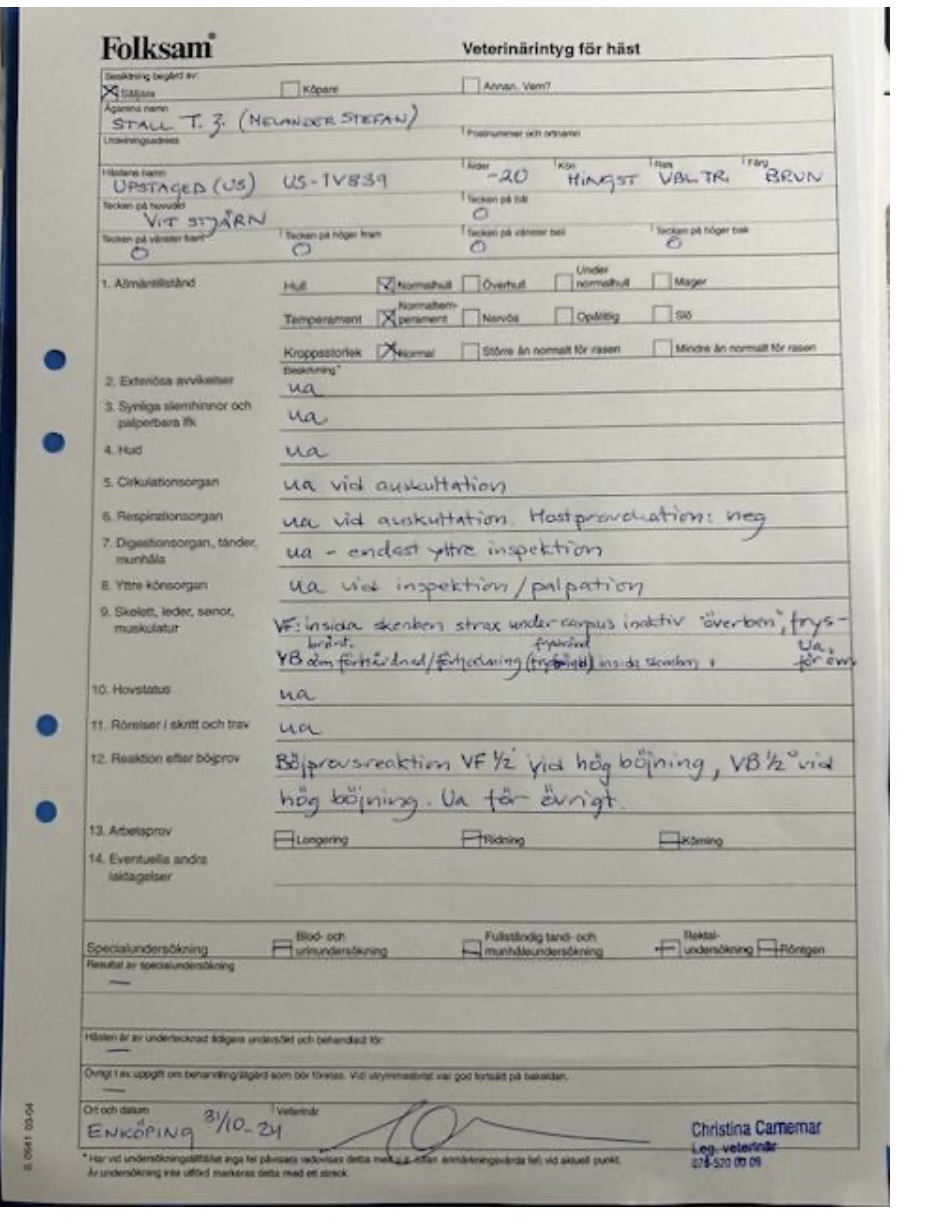 Folksam®
Veterinärintyg för häst
Besiktning begärd av:
Säljare Köpare Annan. Vem?
Ägarens namn
STALL T. Z. (MELANDER STEFAN)
Utdelningsadress Postnummer och ortnamn
Hästens namn Ålder Kön Ras Färg
UPSTAGED (US) US-1V839 -20 HINGST VBL TR. BRUN
Tecken på huvudet Tecken på bål
VIT STJÄRN O
Tecken på vänster fram Tecken på höger fram Tecken på vänster bak Tecken på höger bak
O O O O
1. Allmäntillstånd Hull Normalhull Överhull Under normalhull Mager
Temperament Normaltemperament Nervös Opålitlig Slö
Kroppsstorlek Normal Större än normalt för rasen Mindre än normalt för rasen
Beskrivning*
2. Exteriösa avvikelser ua
3. Synliga slemhinnor och
palperbara lfk ua
4. Hud ua
5. Cirkulationsorgan ua vid auskultation
6. Respirationsorgan ua vid auskultation. Hostprovokation: neg
7. Digestionsorgan, tänder,
munhåla ua - endast yttre inspektion
8. Yttre könsorgan ua vid inspektion/palpation
9. Skelett, leder, senor,
muskulatur
VF: insida skenben strax under carpus inaktiv "överben", frys-
bränt. frysbränd Ua,
VB öm förhårdnad/ insida skenben för öm
10. Hovstatus ua
11. Rörelser i skritt och trav ua
12. Reaktion efter böjprov Böjprovsreaktion VF 1/2° vid hög böjning, VB 1/2° vid
hög böjning. Ua för övrigt.
13. Arbetsprov Longering Ridning Körning
14. Eventuella andra
iakttagelser
Specialundersökning Blod- och urinundersökning Fullständig tand- och munhåleundersökning Rektalundersökning Röntgen
Resultat av specialundersökning
—
Hästen är av undertecknad tidigare undersökt och behandlad för:
—
Övrigt t ex uppgift om behandling/åtgärd som bör företas. Vid utrymmesbrist var god fortsätt på baksidan.
—
Ort och datum Veterinär
ENKÖPING 31/10-24
Christina Carnemar
Leg. veterinär
076-520 00 09
* Har vid undersökningstillfället inga fel påvisats redovisas detta med u.a. (utan anmärkningsvärda fel) vid aktuell punkt.
Är undersökning inte utförd markeras detta med ett streck.
S 0641 03-04